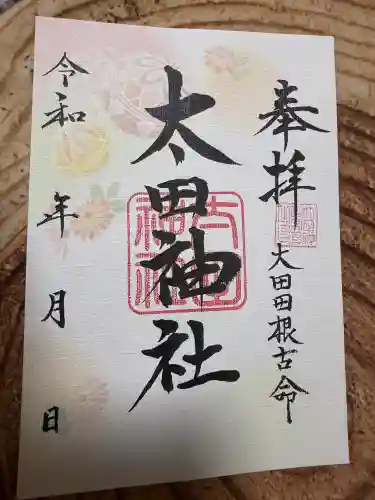 奉拝
大田田根古命
太田神社
令和 年 月 日